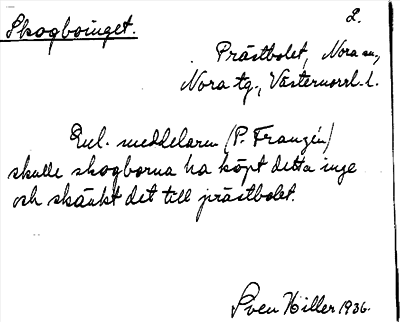 Skogboinget. 2.
Prästbolet, Nora sn,
Nora tg., Västernorrl. l.
Enl. meddelaren (P. Franzén)
skulle skogborna ha köpt detta inge
och skänkt det till prästbolet.
Sven Hiller 1936.